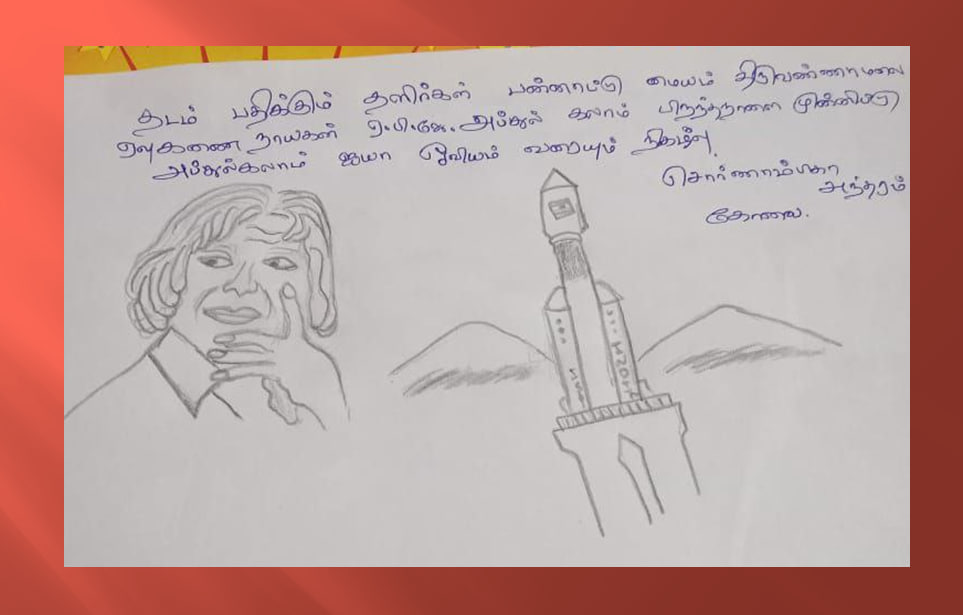 தடம் பதிக்கும் தளிர்கள் பன்னாட்டு மையம் திருவண்ணாமலை
ஏவுகணை நாயகன் ஏ.பி.ஜே. அப்துல் கலாம் பிறந்தநாளை முன்னிட்டு
அப்துல்கலாம் ஐயா ஓவியம் வரையும் நிகழ்வு.
சொர்ணாம்பிகா
அந்தரம்
கோவை.